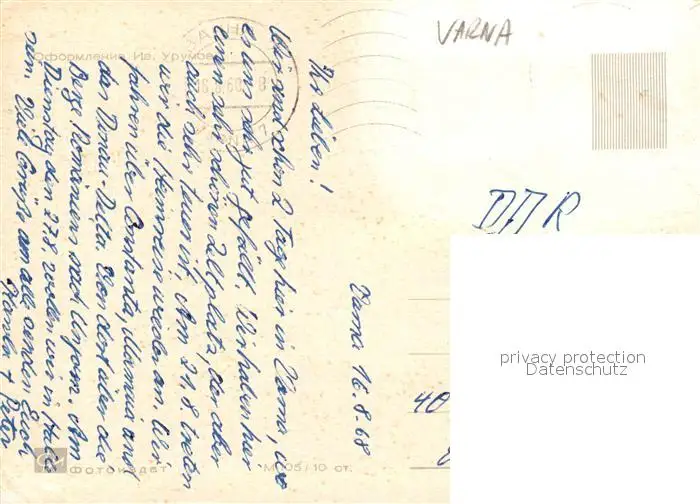 VARNA
Оформление Ив. Урумов
DDR
Varna 16.8.68
Ihr Lieben!
Wir sind schon 2 Tage hier in Varna, wo
es uns sehr gut gefällt. Wir haben hier
einen sehr schönen Zeltplatz, der aber
auch sehr teuer ist. Am 21.8. treten
wir die Heimreise wieder an. Wir
fahren über Constanta, Mamaia und
das Donau-Delta. Von dort über die
Berge Rumäniens nach Ungarn. Am
Dienstag den 27.8 wollen wir in Halle
sein. Viele Grüße an alle senden Euch
+ Peter
40
privacy protection
Datenschutz
Фотоиздат
М 105/10 ст.